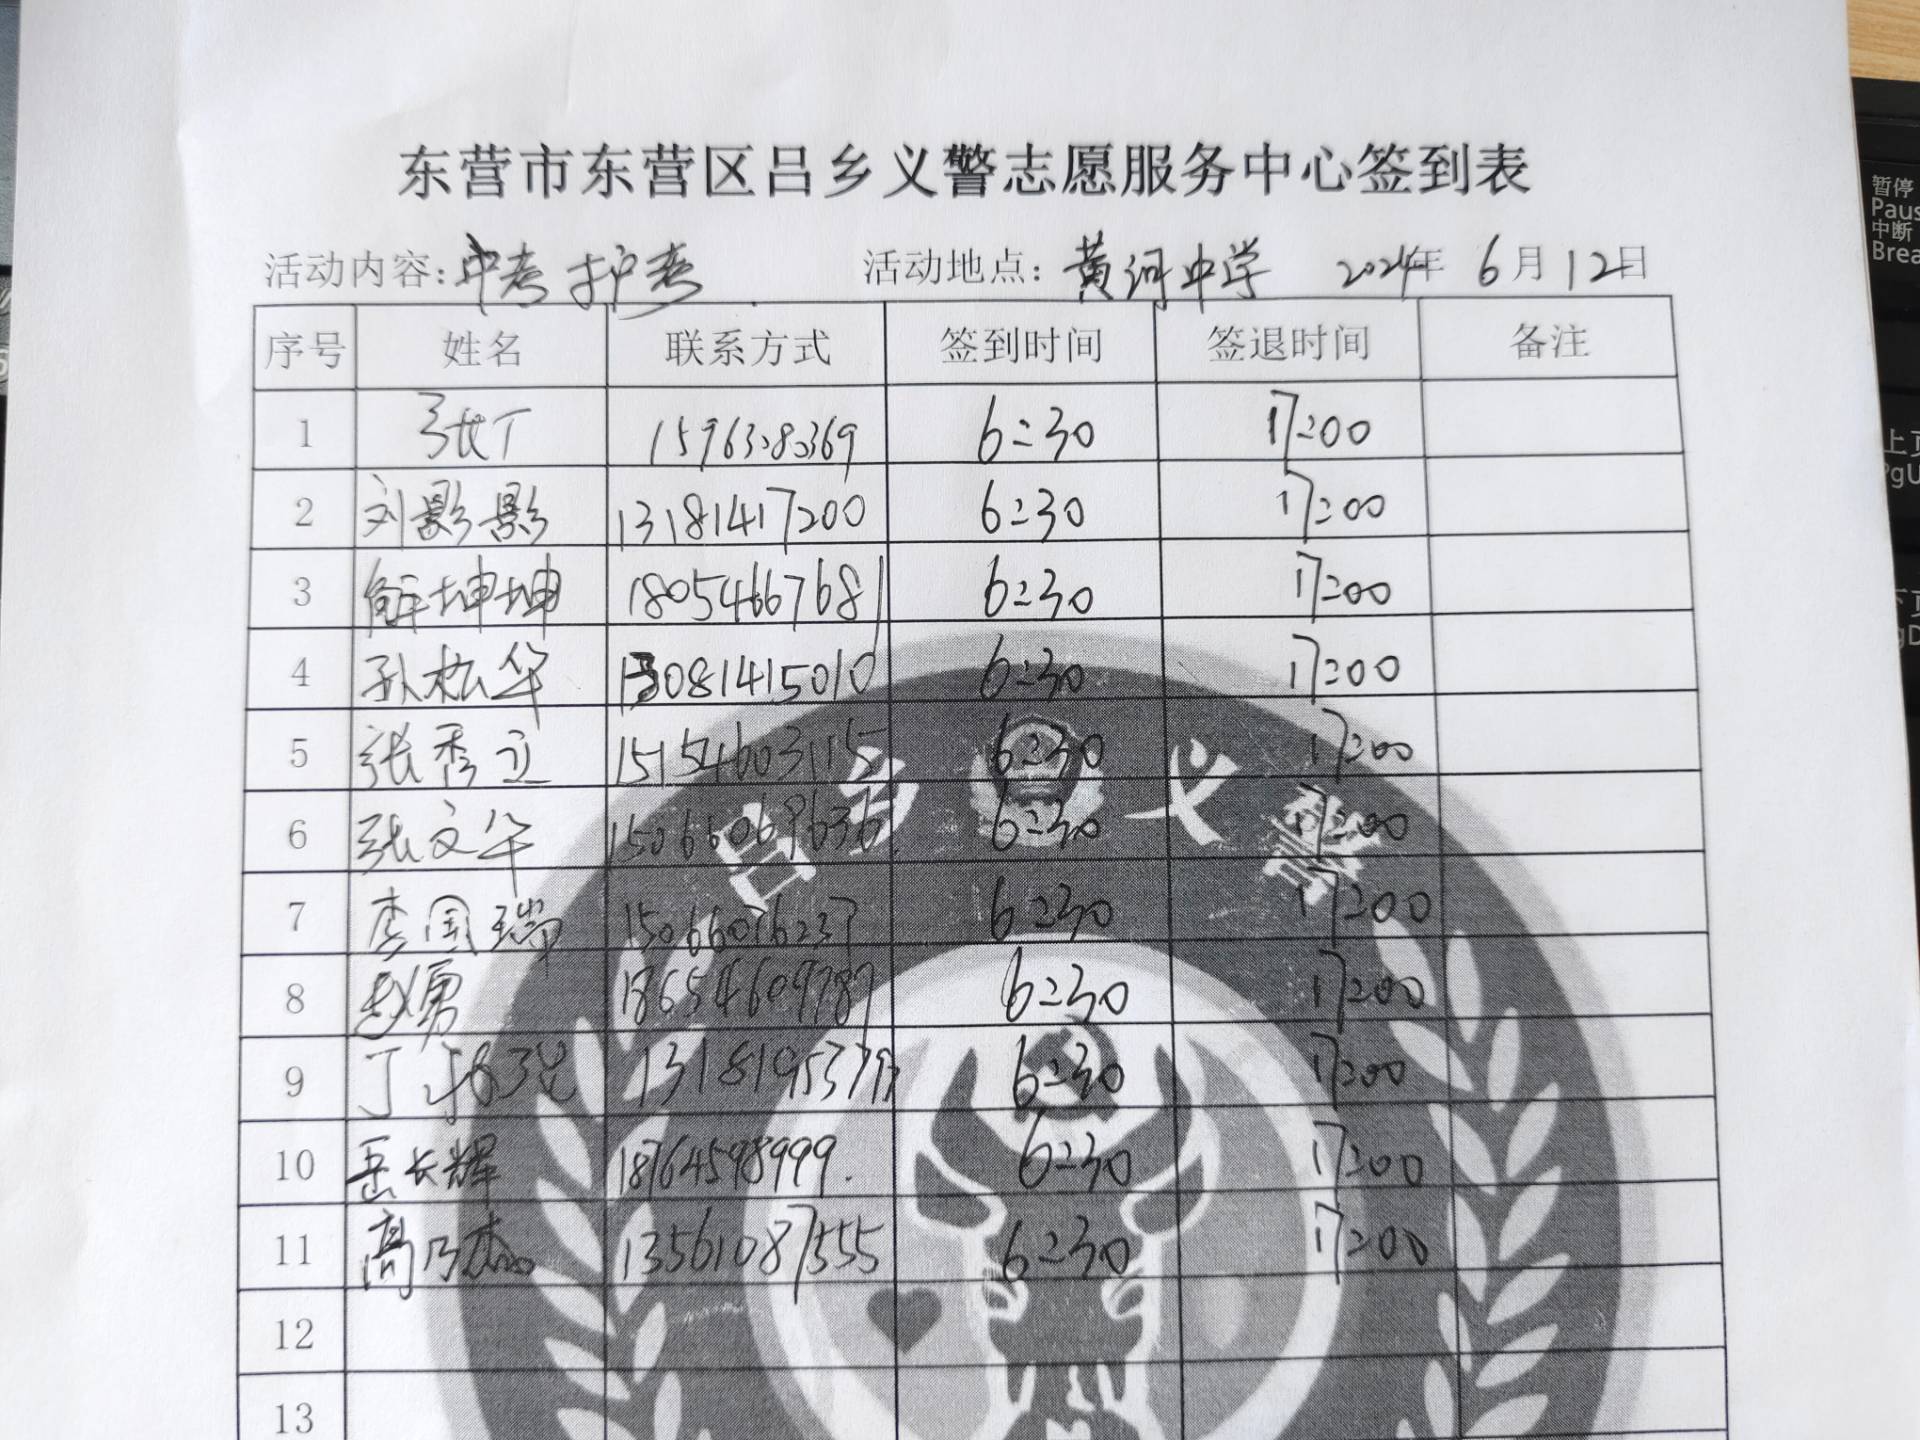 东营市东营区吕乡义警志愿服务中心签到表
活动内容：中考护考 活动地点：黄河中学 2024年 6月12日
序号 姓名 联系方式 签到时间 签退时间 备注
1 张丁 6:30 17:00
2 刘影影 13181417200 6:30 17:00
3 解坤坤 18054667681 6:30 17:00
4 孙松华 13081415010 6:30 17:00
5 张秀立 15154603115 6:30 17:00
6 张文华 15066068636 6:30 17:00
7 李国瑞 15066076237 6:30 17:00
8 赵勇 18654609787 6:30 17:00
9 丁 6:30 17:00
10 岳长辉 18764598999. 6:30 17:00
11 高乃杰 13561087555 6:30 17:00
12
13
吕乡义警
暂停
Paus
中断
Brea
上页
PgU